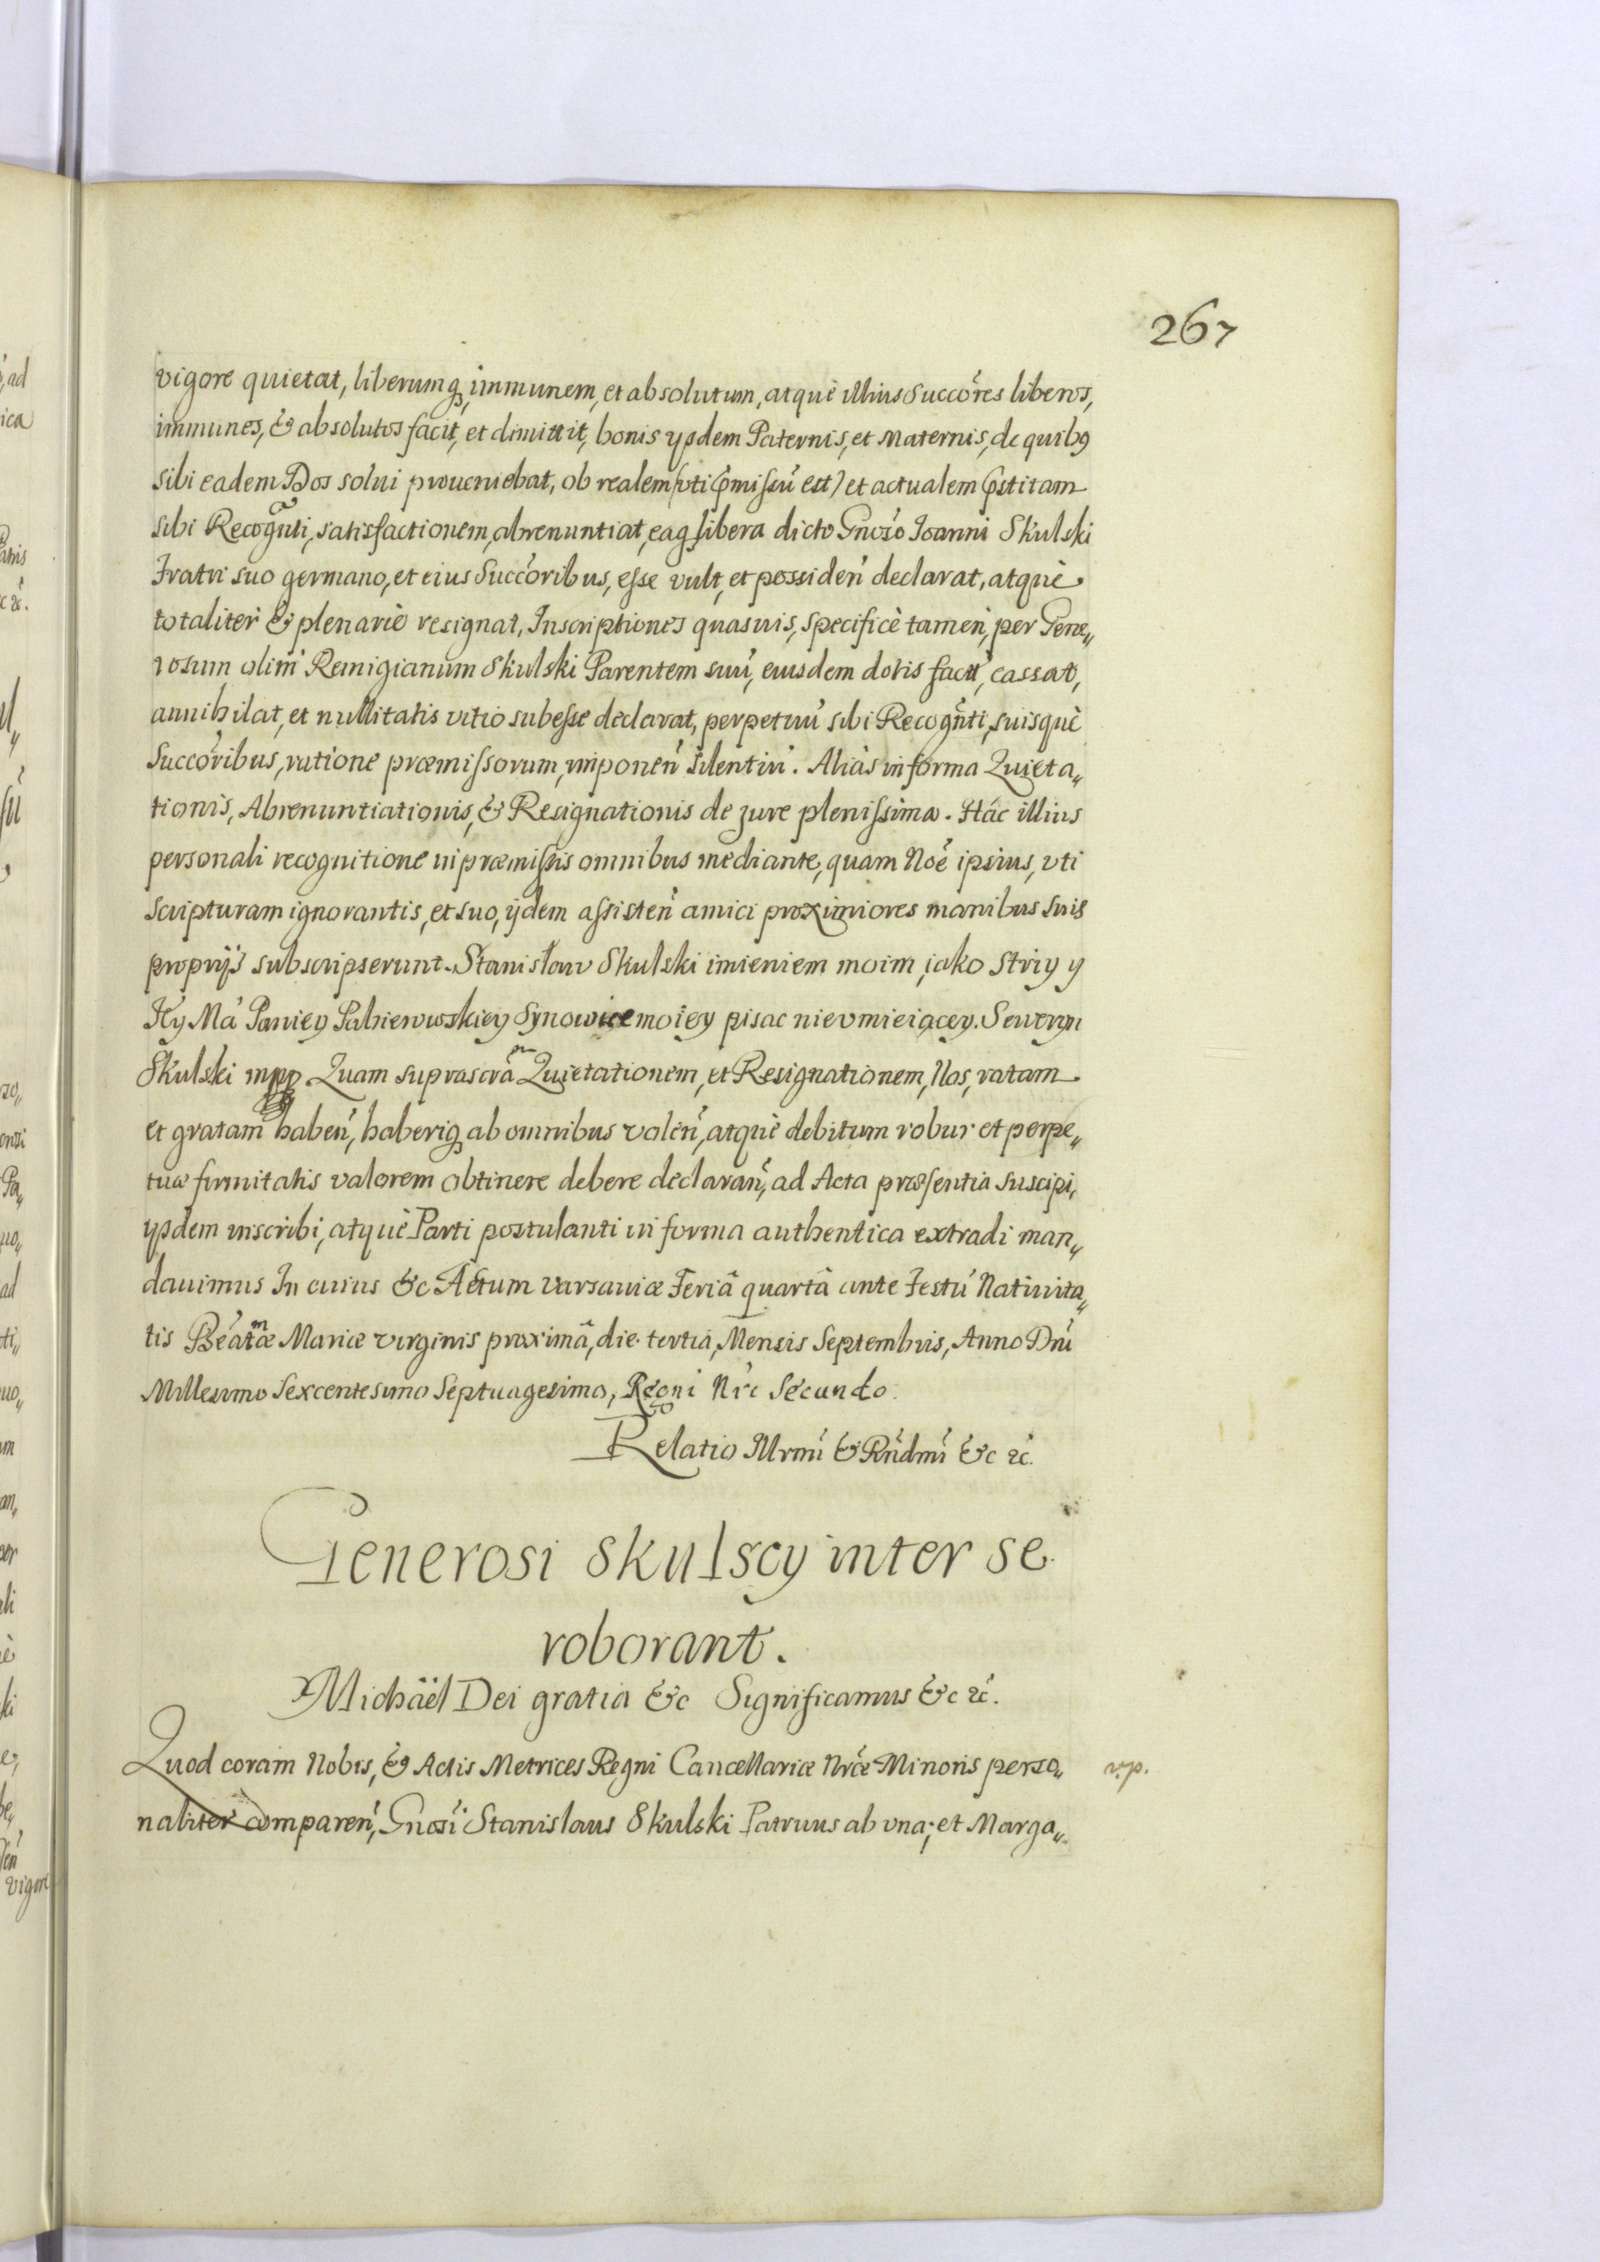 267
vigore quietat, liberumq, immunem, et absolutum, atquè illius Succőres liberos,
immunes, & absolutos facit, et dimittit, bonis ysdem Paternis, et Maternis, de quibꝰ
sibi eadem Dos solui proueniebat, ob realem (vti p̃missũ est) et actualem p̃stitam
sibi Recogñti, satisfactionem, abrenuntiat, eaq libera dicto Gnőso Joanni Skulski
Fratri suo germano, et eius Succőribus, esse vult, et possideñ declarat, atquè
totaliter & plenariè resignat, Inscriptiones quasuis, specificè tamen, per Gene„
rosum olim Remigianum Skulski Parentem suũ, eiusdem dotis fact, cassat,
annihilat, et nullitatis vitio subesse declarat, perpetuũ sibi Recogñti, suisquè
Succőribus, ratione præmissorum, imponeñ silentiũ. Aliàs in forma Quieta„
tionis, Abrenuntiationis, & Resignationis de jure plenissima. Hác illius
personali recognitione in præmissis omnibus mediante, quam Noẽ ipsius, vti
scripturam ignorantis, et suo, ijdem assisteñ amici proximiores manibus suis
proprijs subscripserunt. Stanisław Skulski imieniem moim, iako Striy y
Jey Mći Paniey Synowice moiey pisac nievmieiącey. Seweryn
Skulski mpp Quam suprascrãm Quietationem, et Resignationem, Nos, ratam
et gratam habeñ, haberiq ab omnibus voleñ, atquè debitum robur et perpe„
tuæ firmitatis valorem obtinere debere declarañ, ad Acta præsentia suscipi,
ysdem inscribi, atquè Parti postulanti in forma authentica extradi man„
dauimus In cuius &c Actum Varsauiæ Feriâ quartâ ante Festũ Natiuita„
tis Beatæ Mariæ Virginis proximâ, die tertia, Mensis Septembris, Anno Dñi
Millesimo Sexcentesimo Septuagesimo, Regni Nri Secundo.
Relatio Illrmi & Rndmi &c &c.
Generosi Skulscy inter se
roborant.
Michäel Dei gratia &c Significamus &c &c.
Quod coram Nobis, & Actis Metrices Regni Cancellariæ Nrẽ Minoris perso„
naliter compareñ, Gnosi Stanislaus Skulski Patruus ab vna, et Marga„